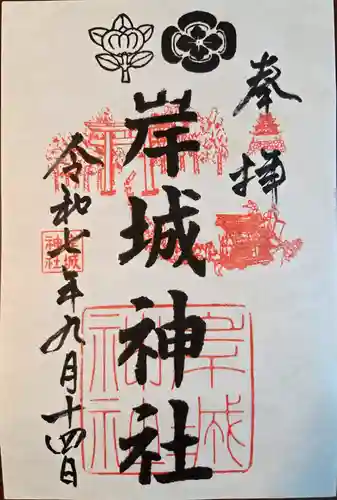 奉拝
岸城神社
令和七年九月十四日
岸城
神社
岸城
神社